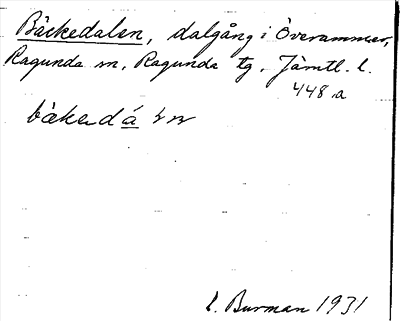 Bäckedalen, dalgång i Överammer,
Ragunda sn, Ragunda tg. Jämtl. l.
448 a
bäkedá
L. Burman 1931